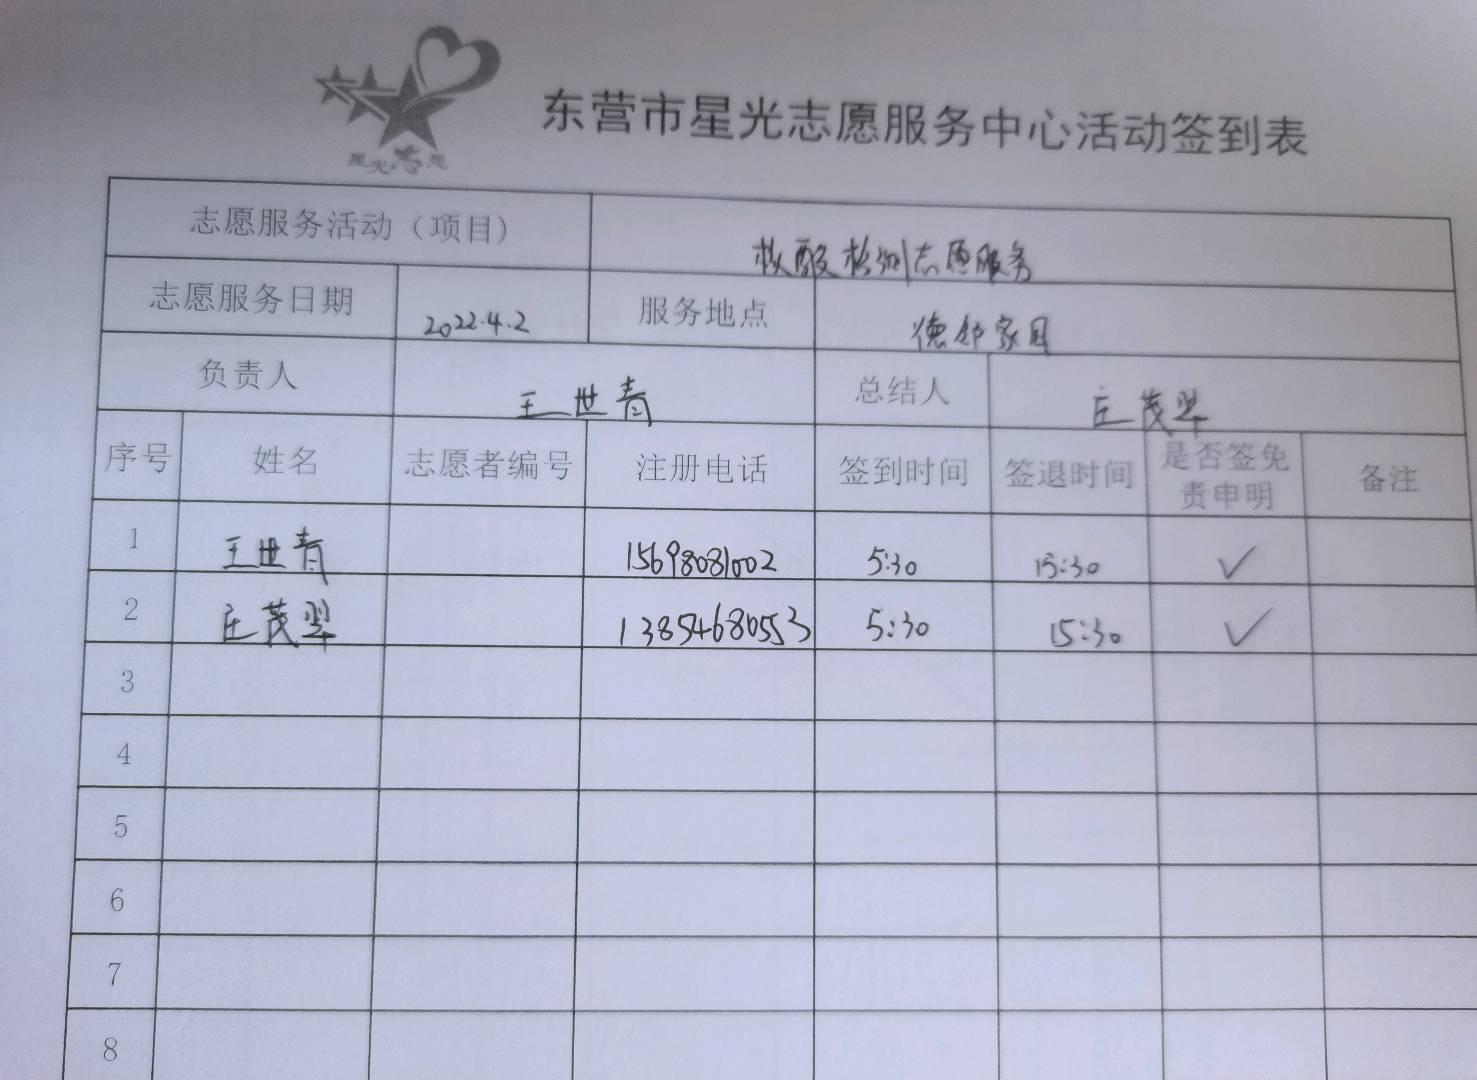 星光志愿
东营市星光志愿服务中心活动签到表
志愿服务活动（项目） 核酸检测志愿服务
志愿服务日期 2022.4.2 服务地点 德邻家园
负责人 王世青 总结人 庄茂翠
序号 姓名 志愿者编号 注册电话 签到时间 签退时间 是否签免责申明 备注
1 王世青 15698081002 5:30 15:30 ✓
2 庄茂翠 13854680553 5:30 15:30 ✓
3
4
5
6
7
8